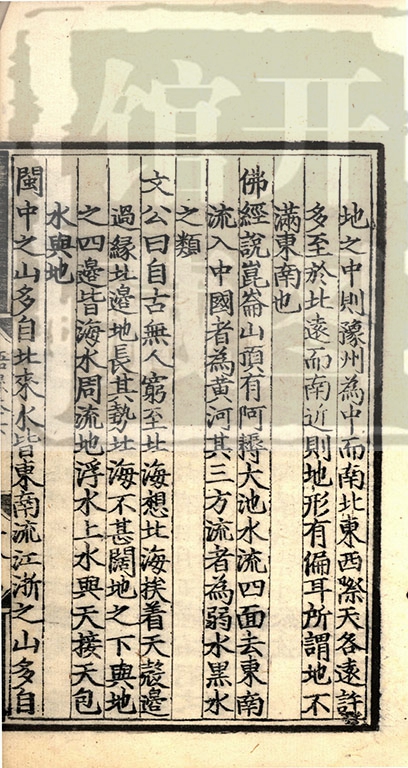 地之中則豫州為中而南北東西際天各遠許
多至於北遠而南近則地形有偏耳所謂地不
滿東南也
佛經說崑崙山頂有阿耨大池水流四面去東南
流入中國者為黃河其三方流者為弱水黑水
之類
文公曰自古無人窮至北海想北海挨着天殼邊
過緣北邊地長其勢北海不甚闊地之下與地
之四邊皆海水周流地浮水上水與天接天包
水與地
閩中之山多自北來水皆東南流江浙之山多自